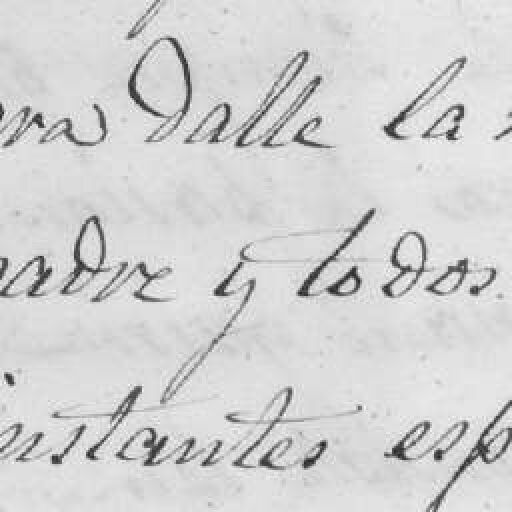 ora dalle la
madre y todos
instantes esp